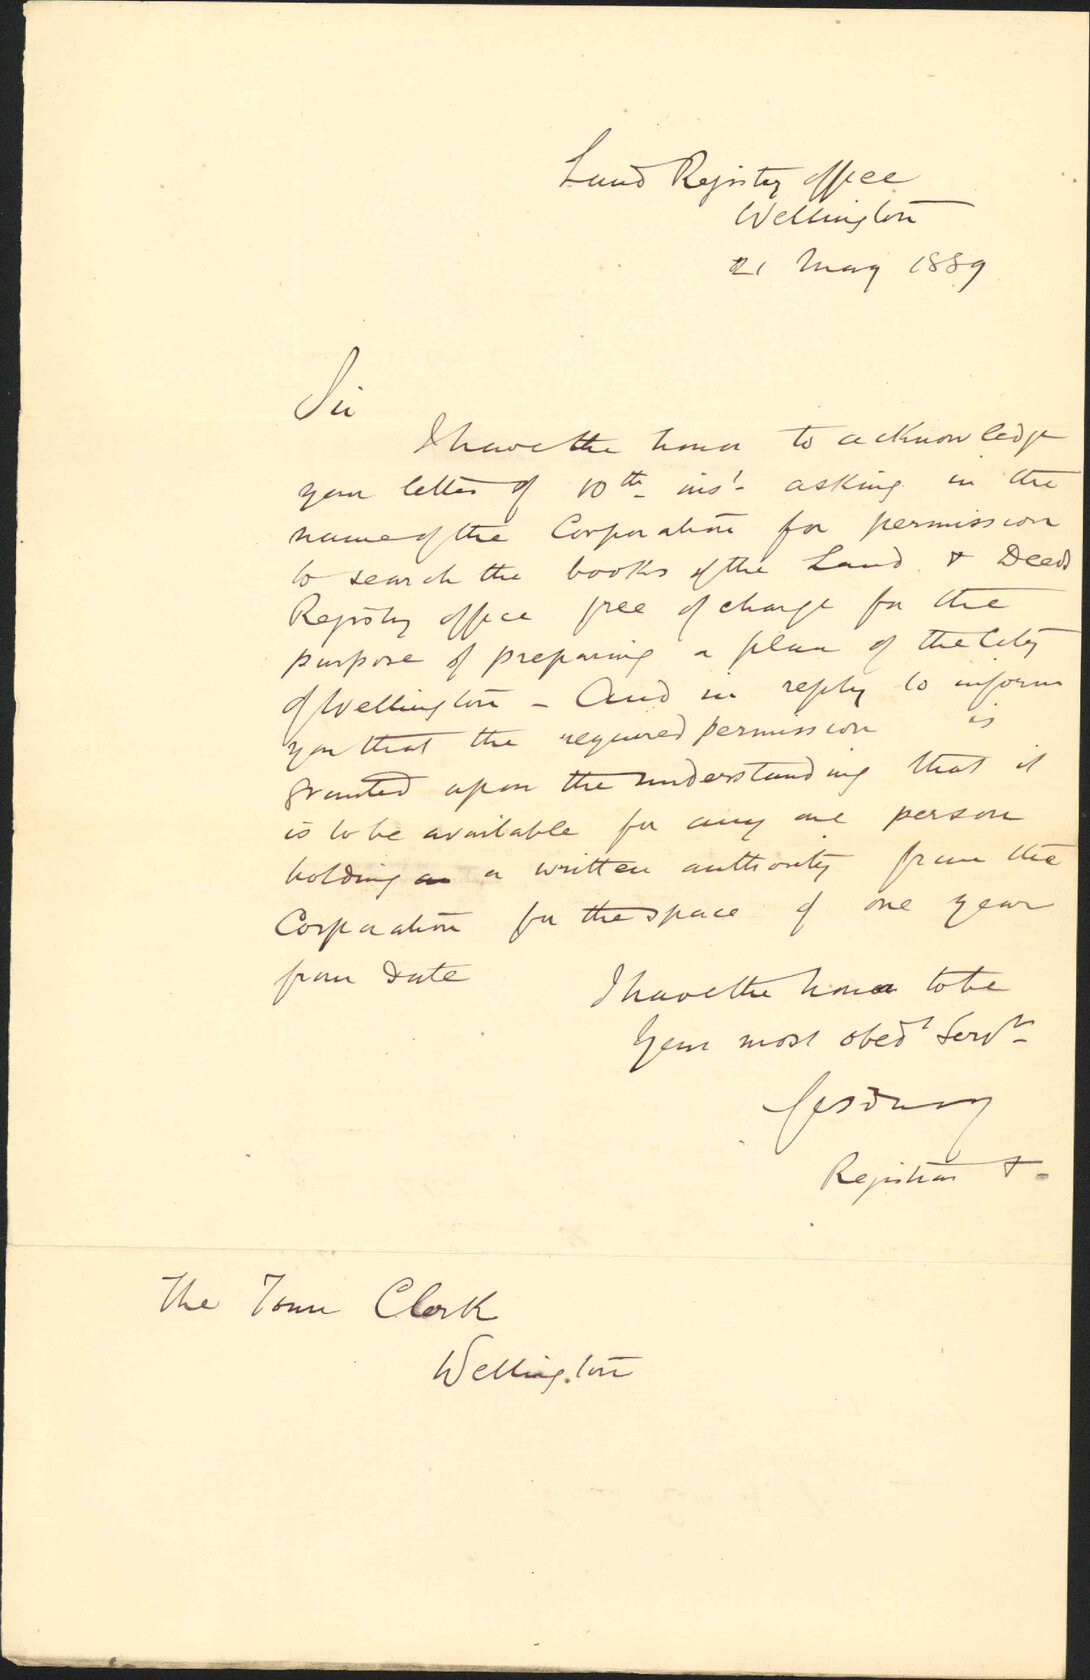 Land Registry office
Wellington
21 May 1889
Sir
I have the honor to acknowledge
your letter of 10th inst asking in the
name of the Corporation for permission
to search the books of the Land & Deeds
Registry office free of charge for the
purpose of preparing a plan of the City
of Wellington - And in reply to inform
you that the required permission is
granted upon the understanding that it
is to be available for any one person
holding a written authority from the
Corporation for the space of one year
from date
I have the honor to be
Your most obedt Servt
Registrar &-
The Town Clerk
Wellington